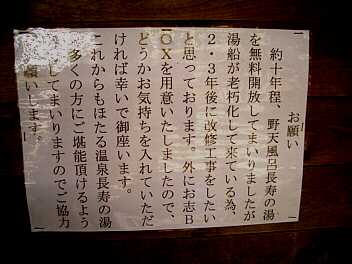 お願い
約十年程、野天風呂長寿の湯
を無料開放してまいりましたが
湯船が老朽化して来ている為、
2・3年後に改修工事をしたい
と思っております。外にお志B
OXを用意いたしましたので、
どうかお気持ちを入れていただ
ければ幸いで御座います。
これからもほたる温泉長寿の湯
多くの方にご堪能頂けるよう
してまいりますのでご協力
願いします。